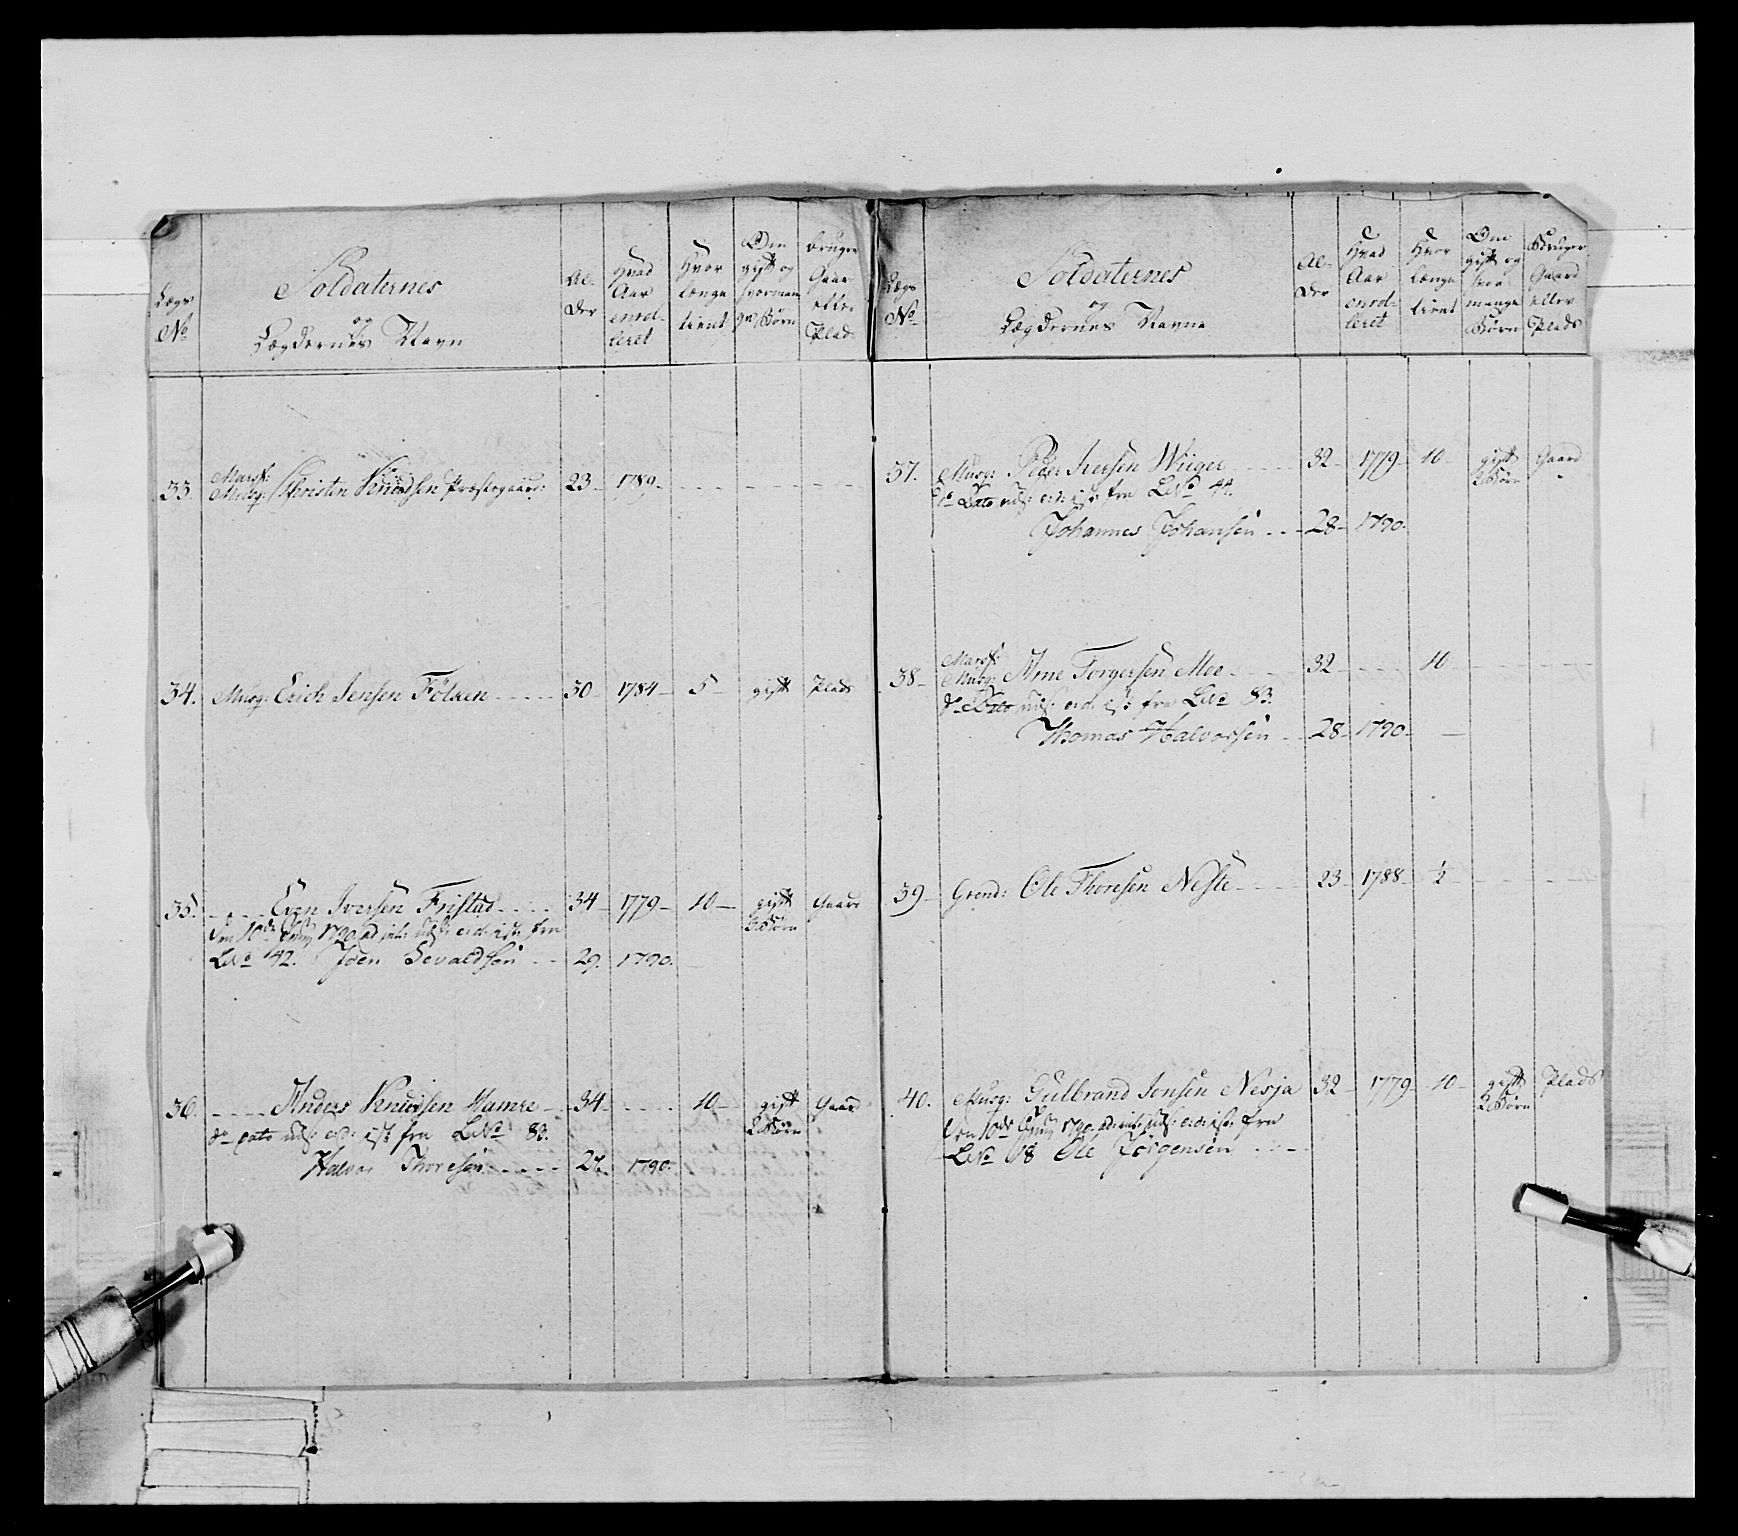 Lægs No
Soldaternes
og
Lægdernes Navn
Al-
der
Hvad
Aar
enrol-
leret
Hvor
længe
tient
Om
gift og
hvorman
ge Børn
bruger
Gaar
eller
Plads
33. Marsk: Musq: Christen Knudsen Præstegaard: 23 - 1789 -
34. Musq: Erich Jensen Fölsen 30 1784 - 5 - gift Plads
35. Even Iversen Fristad 34 - 1779 - 10 - gift Gaard
3 Børn
den 10de Juny 1790 fra
LNo 42. Joen Sevaldsen 29. 1790.
36. Anders Knudsen Hamre 34 - 10 - gift Gaard
2 Børn
do dato fra LNo 83.
Halvor Thoresen 27. 1790.
Lægs No
Soldaternes
og
Lægdernes Navne
Al-
der
Hvad
Aar
enrol-
leret
Hvor
længe
tient
Om
gift og
hvor
mange
Børn
Bruger
Gaard
eller
Plads
37. Musq: Peder Iversen Wiiger 32 - 1779 - 10 - gift Gaard
2 Børn
do Dato fra LNo 44.
Johannes Johansen 28 - 1790.
38 - Marsk: Musq: Arne Torgersen Moe 32 10
do Dato fra LNo 83.
Thomas Halvorsen 28 - 1790 -
39 - Grend: Ole Thoresen Neste 23 - 1788 - ½
40. Musq: Gulbrand Jonsen Nesja 32 - 1779 - 10 - gift Plads
2 Børn
den 10de Juny 1790 fra
LNo 68 Ole Jörgensen